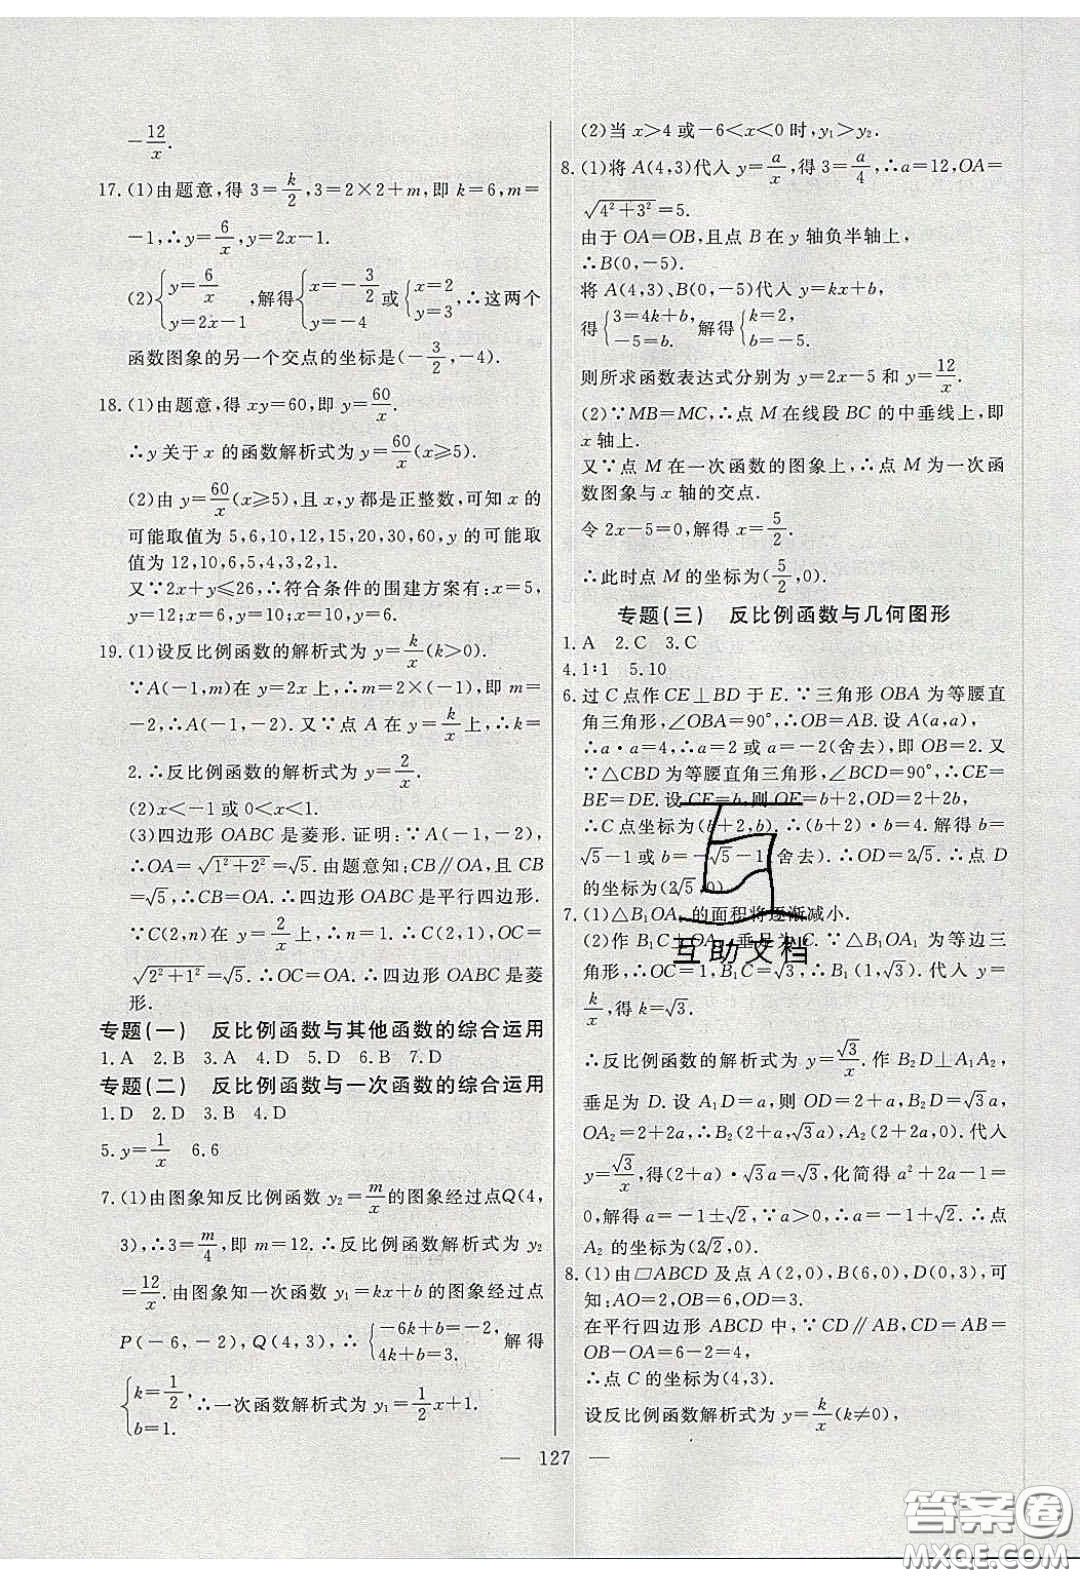 -12/x.
17.(1)由题意,得 3=k/2,3=2×2+m,即 k=6,m=
-1,∴y=6/x,y=2x-1.
(2){y=6/x, y=2x-1 ,解得{x=-3/2, y=-4 或{x=2, y=3, ∴这两个
函数图象的另一个交点的坐标是(-3/2,-4).
18.(1)由题意,得 xy=60,即 y=60/x.
∴y 关于 x 的函数解析式为 y=60/x(x≥5).
(2)由 y=60/x(x≥5),且 x,y 都是正整数,可知 x 的
可能取值为 5,6,10,12,15,20,30,60,y 的可能取
值为 12,10,6,5,4,3,2,1.
又∵2x+y≤26,∴符合条件的围建方案有:x=5,
y=12;x=6,y=10;x=10,y=6.
19.(1)设反比例函数的解析式为 y=k/x(k>0).
∵A(-1,m)在 y=2x 上,∴m=2×(-1),即 m=
-2,∴A(-1,-2).又∵点 A 在 y=k/x上,∴k=
2.∴反比例函数的解析式为 y=2/x.
(2)x<-1 或 0<x<1.
(3)四边形 OABC 是菱形.证明:∵A(-1,-2),
∴OA=√(1²+2²)=√5.由题意知:CB∥OA,且 CB
=√5,∴CB=OA.∴四边形 OABC 是平行四边形.
∵C(2,n)在 y=2/x上,∴n=1.∴C(2,1),OC=
√(2²+1²)=√5.∴OC=OA.∴四边形 OABC 是菱
形.
专题(一) 反比例函数与其他函数的综合运用
1.A 2.B 3.A 4.D 5.D 6.B 7.D
专题(二) 反比例函数与一次函数的综合运用
1.D 2.D 3.B 4.D
5.y=1/x 6.6
7.(1)由图象知反比例函数 y₂=m/x的图象经过点Q(4,
3),∴3=m/4,即 m=12.∴反比例函数解析式为 y₂
=12/x.由图象知一次函数 y₁=kx+b 的图象经过点
P(-6,-2),Q(4,3),∴{-6k+b=-2, 4k+b=3. 解得
{k=1/2, b=1. ∴一次函数解析式为 y₁=1/2x+1.
(2)当 x>4 或-6<x<0 时,y₁>y₂.
8.(1)将 A(4,3)代入 y=a/x,得 3=a/4,∴a=12,OA=
√(4²+3²)=5.
由于 OA=OB,且点 B 在 y 轴负半轴上,
∴B(0,-5).
将 A(4,3)、B(0,-5)代入 y=kx+b,
得{3=4k+b, -5=b. 解得{k=2, b=-5.
则所求函数表达式分别为 y=2x-5 和 y=12/x.
(2)∵MB=MC,∴点 M 在线段 BC 的中垂线上,即
x 轴上.
又∵点 M 在一次函数的图象上,∴点 M 为一次函
数图象与 x 轴的交点.
令 2x-5=0,解得 x=5/2.
∴此时点 M 的坐标为(5/2,0).
专题(三) 反比例函数与几何图形
1.A 2.C 3.C
4.1∶1 5.10
6.过 C 点作 CE⊥BD 于 E.∵三角形 OBA 为等腰直
角三角形,∠OBA=90°,∴OB=AB.设 A(a,a),
∴a·a=4,∴a=2 或 a=-2(舍去),即 OB=2.又
∵△CBD 为等腰直角三角形,∠BCD=90°,∴CE=
BE=DE.设 CE=b,则 OE=b+2,OD=2+2b,
∴C 点坐标为(b+2,b).∴(b+2)·b=4.解得 b=
√5-1 或 b=-√5-1(舍去).∴OD=2√5.∴点 D
的坐标为(2√5,0).
7.(1)△B₁OA₁ 的面积将逐渐减小.
(2)作 B₁C⊥OA₁,垂足为 C.∵△B₁OA₁ 为等边三
角形,∴OC=1,B₁C=√3,∴B₁(1,√3).代入 y=
k/x,得 k=√3.
∴反比例函数的解析式为 y=√3/x.作 B₂D⊥A₁A₂,
垂足为 D.设 A₁D=a,则 OD=2+a,B₂D=√3a,
OA₂=2+2a,∴B₂(2+a,√3a),A₂(2+2a,0).代入
y=√3/x,得(2+a)·√3a=√3,化简得 a²+2a-1=
0,解得 a=-1±√2,∵a>0,∴a=-1+√2.∴点
A₂ 的坐标为(2√2,0).
8.(1)由▱ABCD 及点 A(2,0),B(6,0),D(0,3),可
知:AO=2,OB=6,OD=3.
在平行四边形 ABCD 中,∵CD∥AB,CD=AB=
OB-OA=6-2=4,
∴点 C 的坐标为(4,3).
设反比例函数解析式为 y=k/x(k≠0),
— 127 —
互助文档
答案圈
MXQE.COM